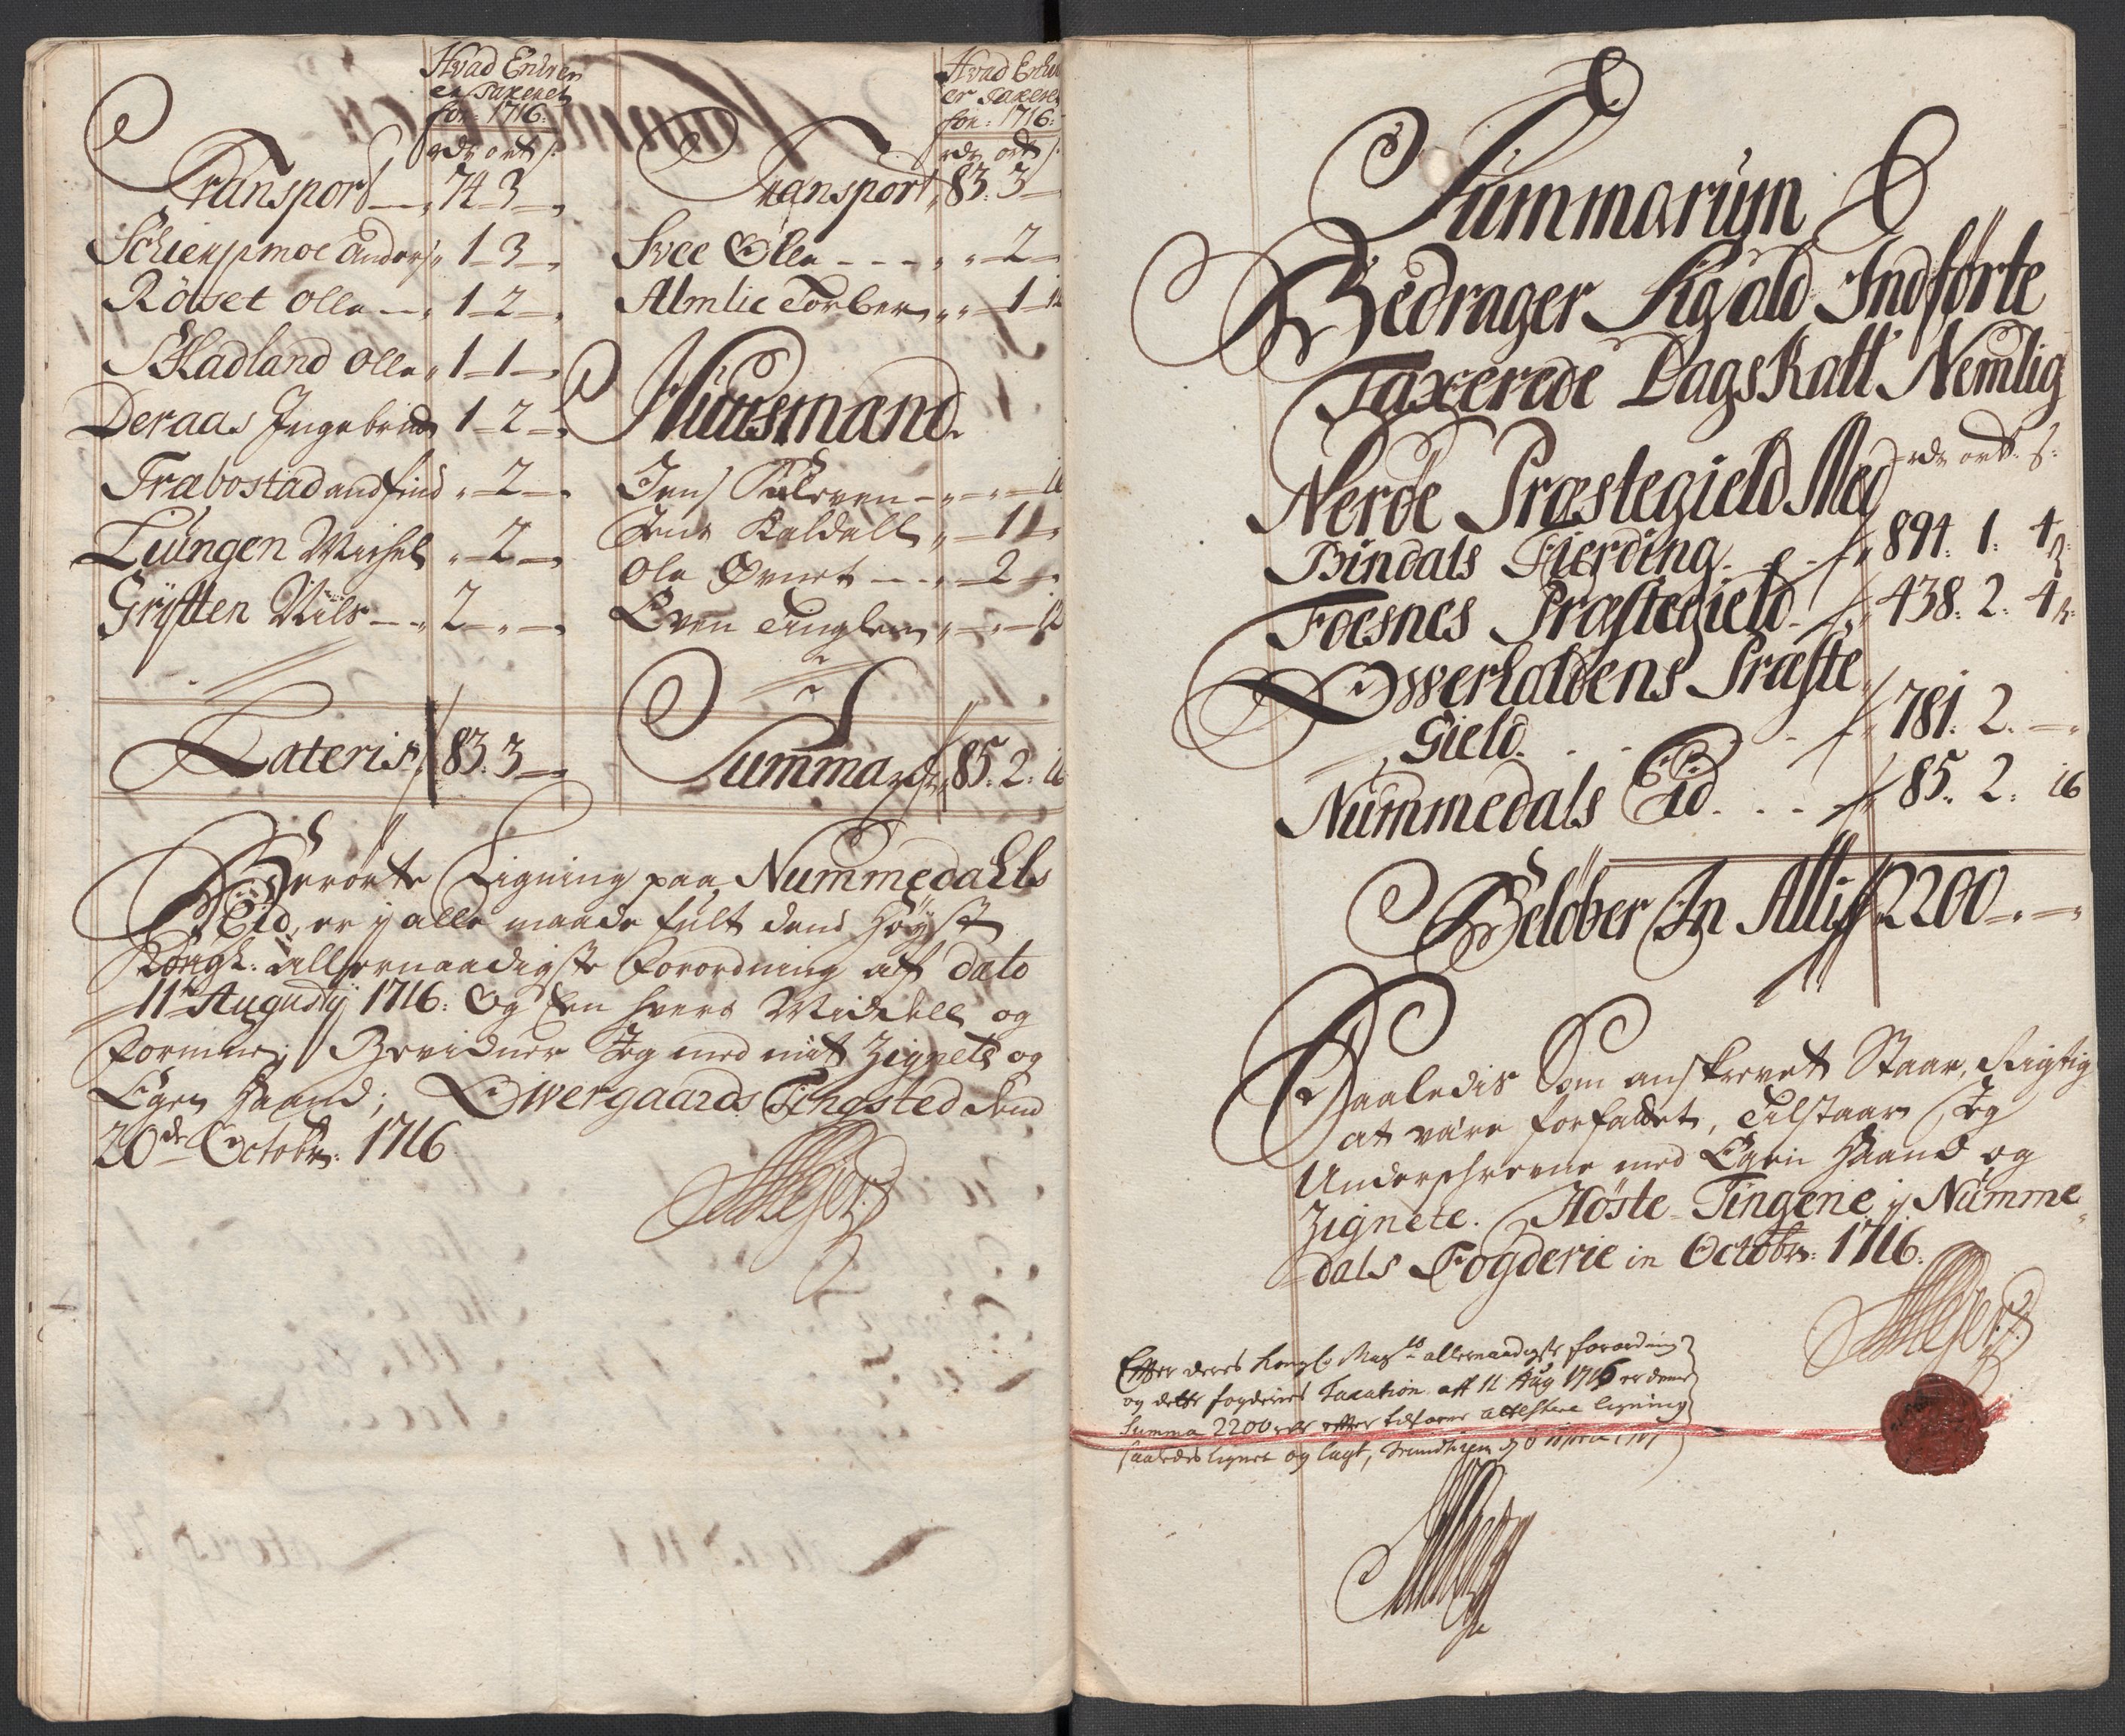 Hvad Enhver
er Taxeret
for: 1716:
rdr ort s:
Transport — 74 3 —
Schiersmoe Anders 1 – 3 –
Röset Olle — 1 – 2 –
Skadland Olle 1 – 1 –
Deraas Ingebrict 1 – 2 –
Træbostad andfind „ – 2 –
Liungen Michel „ – 2 –
Gryften Nils — 2 – „ –
Lateris 83. 3 –
Hvad Enhver
er Taxeret
for: 1716:
rdr ort s:
Transport 83. 3 –
Svee Olle – – – „ – 2 –
Almlie Torber „ – 1 – 12
Huusmænd.
Jens – „ – „ – 16
Jens Kaldall „ – 1 –
Ole Övnet – – „ – 2 –
Even Tingleen „ – „ – 12
Summa 85. 2. 16
Berörte Ligning paa Nummedahls
Eid, er y alle maade fult dend Höyst
Kongl: allernaadigste Forordning aff dato
11te Augusty 1716: Og En hvers Middell og
formue; Bevidner Jeg med mit Zignete og
Egen Haand; Owergaards Tingsted dend
20de Octobr: 1716
Summarum
Bedrager Sig ald Indförte
Taxerede Dagskatt Nemlig
rdr ort. s:
Neröe Præstegield Med
Bindals Fierding. 894: 1: 4 s:
Foesnes Præstegield. 438. 2. 4 s:
Owerhaldens Præste
Gield. 781. 2. –
Nummedals Eid. 85. 2. 16
Belöber In Alliss 2200 – „ –
Saaledis Som anskrevet Staar, Rigtig
at være forfaldet, Tilstaar Jeg
Underschrevne med Egen Haand og
Zignete. Höste Tingene y Numme„
dals Fogderie in Octobr: 1716.
Efter deres Kongl. Mayts allernaadigste forordning
og dette fogderies Taxation aff 11 Aug 1716 er denne
Summa 2200 rdr efter tilforne attesterede ligning
saaledes lignet og lagt, Trundhiem d 8